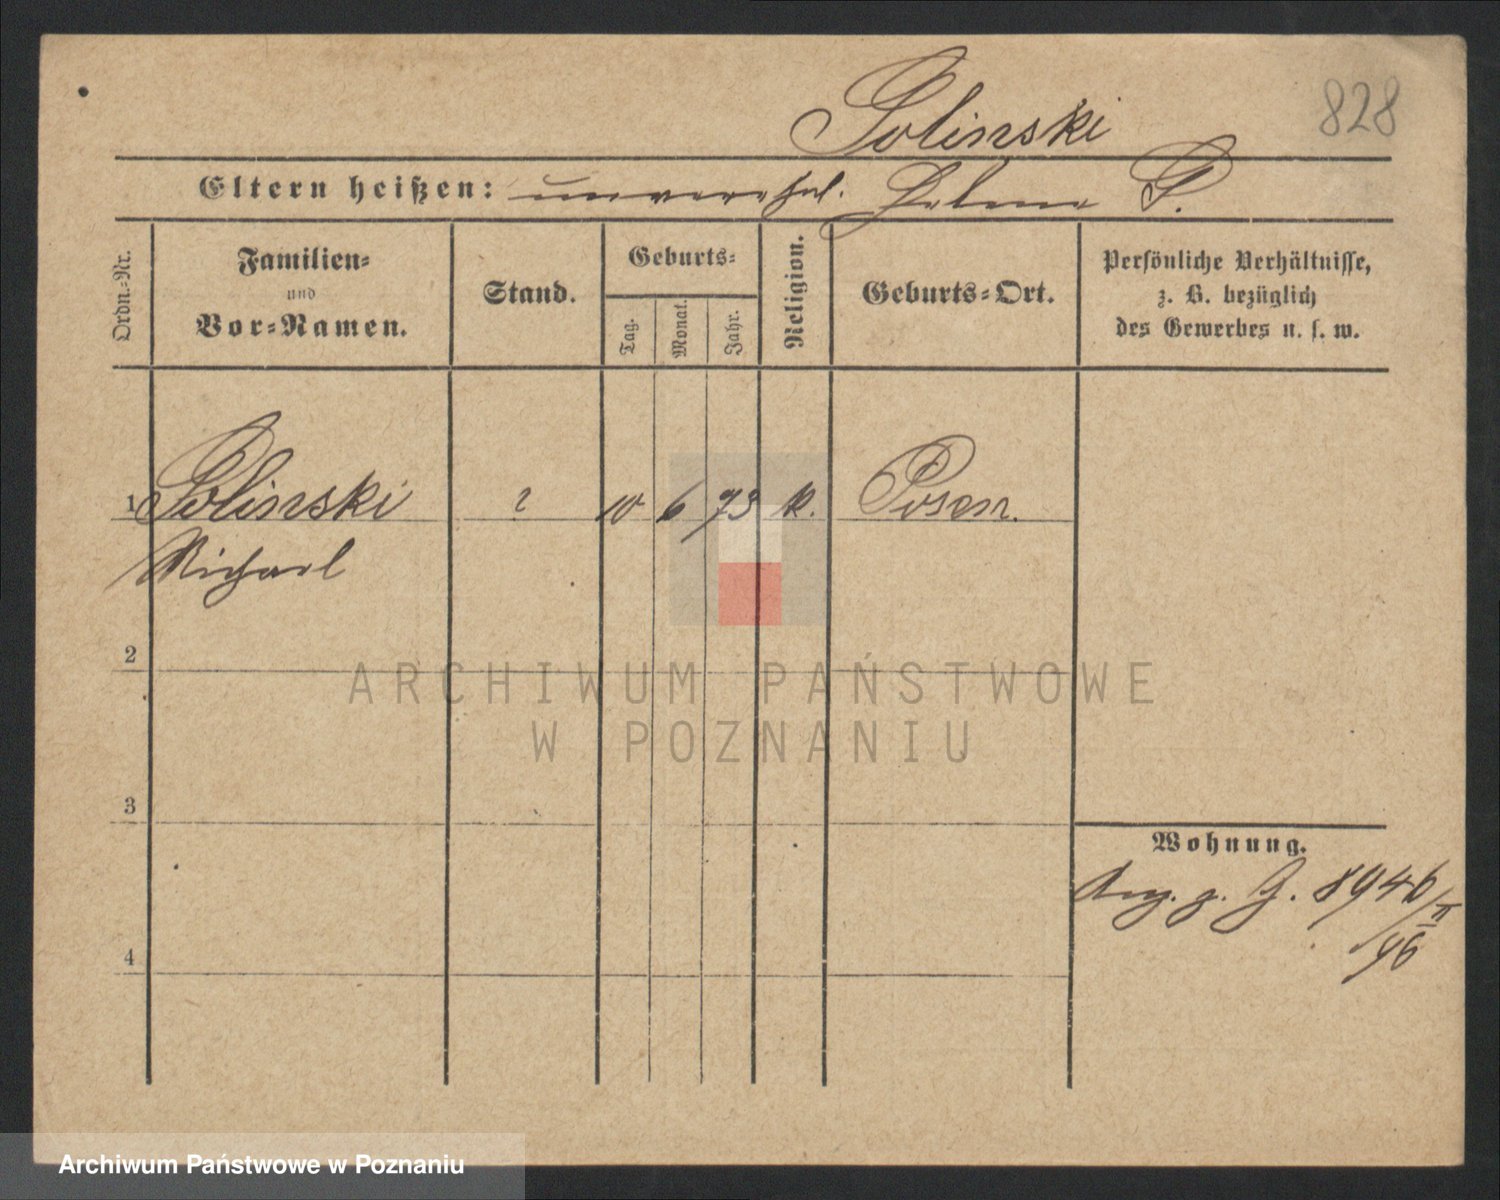 828
Solinski
Eltern heißen: unverehel. Helena S.
Ordn.-Nr.
Familien-
und
Vor-Namen.
Stand.
Geburts-
Tag.
Monat.
Jahr.
Religion.
Geburts-Ort.
Persönliche Verhältnisse,
z. B. bezüglich
des Gewerbes u. s. w.
1 Solinski ? 10 6 73 k. Posen.
Michael
2
ARCHIWUM PAŃSTWOWE
W POZNANIU
3
Wohnung.
8946/II
96
4
Archiwum Państwowe w Poznaniu